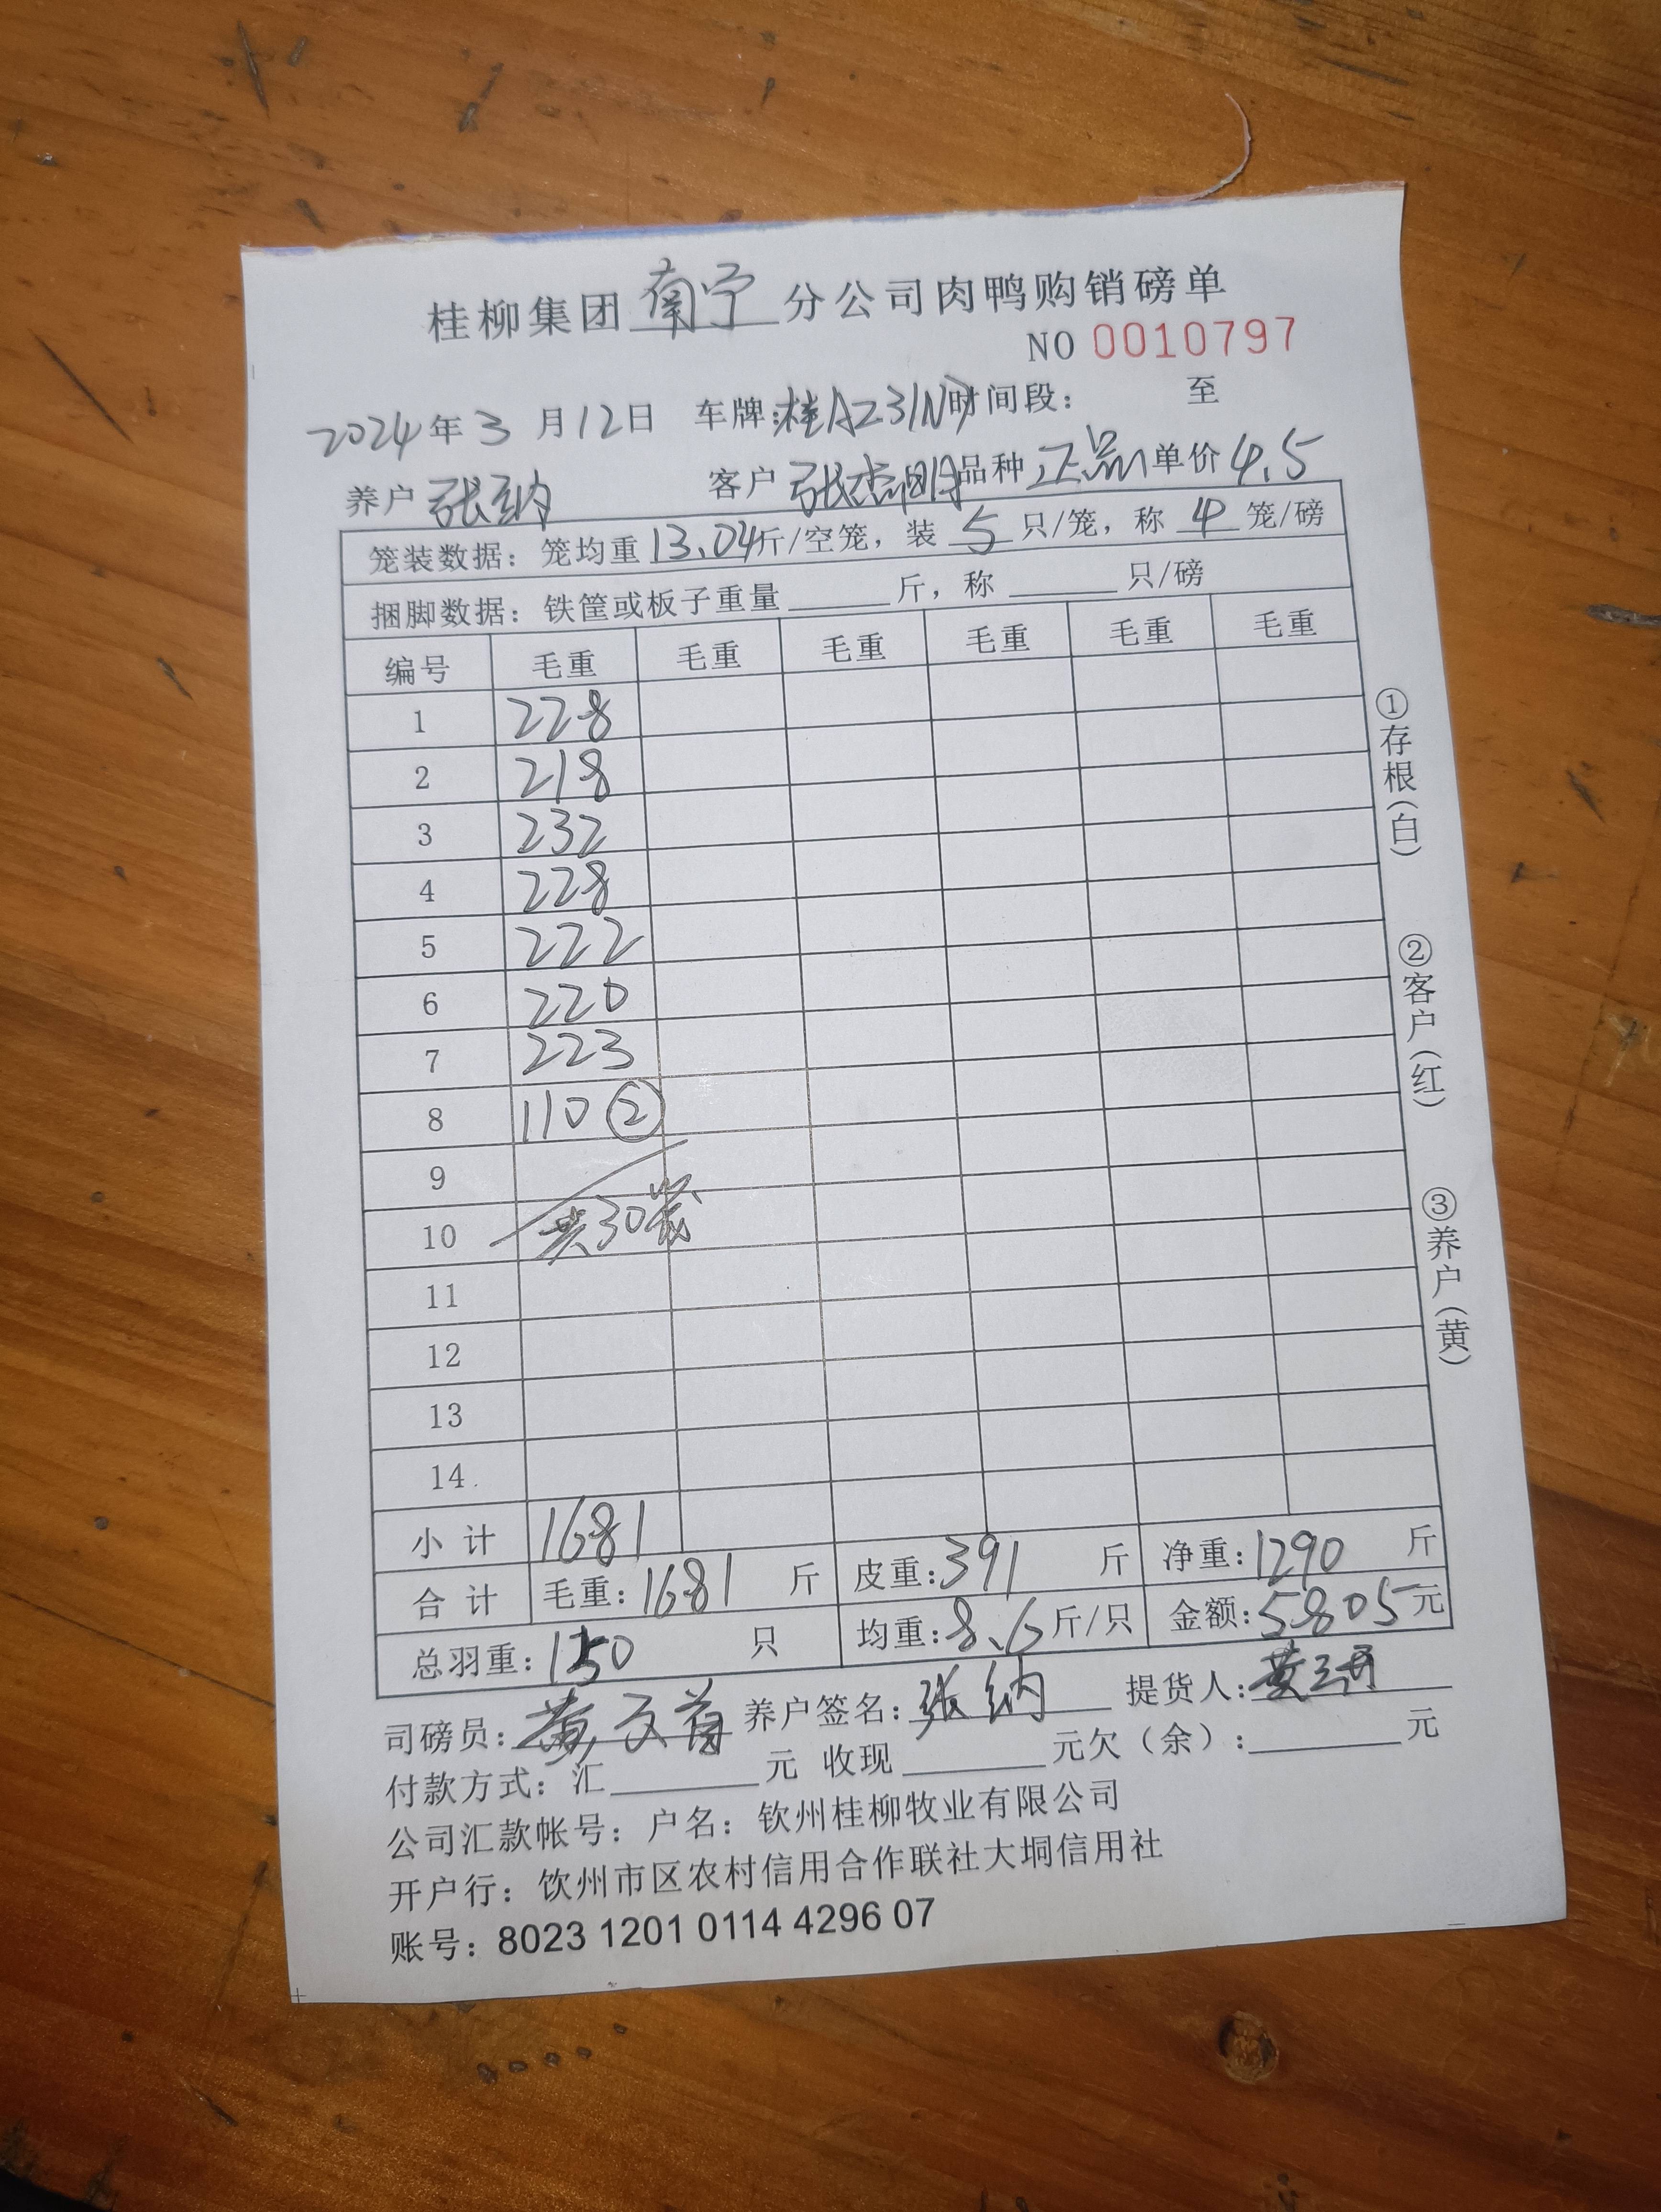 桂柳集团南宁分公司肉鸭购销磅单
NO 0010797
2024年3月12日 车牌:桂AZ31N 时间段: 至
养户 张纳 客户 张杰明 品种 正品 单价 4.5
笼装数据: 笼均重 13.04斤/空笼, 装 5 只/笼, 称 4 笼/磅
捆脚数据: 铁筐或板子重量 斤, 称 只/磅
编号 毛重 毛重 毛重 毛重 毛重 毛重
1 228
2 218
3 232
4 228
5 222
6 220
7 223
8 110 ②
9
10 共30笼
11
12
13
14
小计 1681
合计 毛重: 1681 斤 皮重: 391 斤 净重: 1290 斤
总羽重: 150 只 均重: 8.6 斤/只 金额: 5805 元
司磅员: 黄 养户签名: 张纳 提货人: 黄
付款方式: 汇 元 收现 元欠(余): 元
公司汇款帐号: 户名: 钦州桂柳牧业有限公司
开户行: 饮州市区农村信用合作联社大垌信用社
账号: 8023 1201 0114 4296 07
①存根(白)
②客户(红)
③养户(黄)